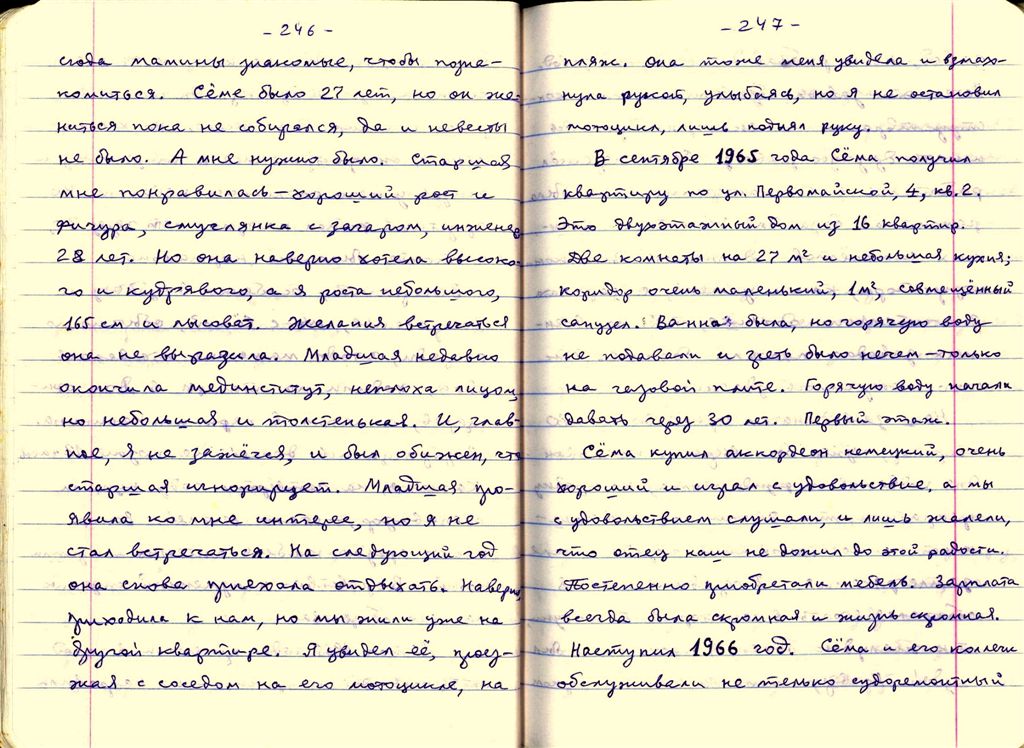 - 246 -
сюда мамины знакомые, чтобы позна-
комиться. Сёме было 27 лет, но он же-
ниться пока не собирался, да и невесты
не было. А мне нужно было. Старшая
мне понравилась – хороший рост и
фигура, смуглянка с загаром, инженер
28 лет. Но она наверно хотела высоко-
го и кудрявого, а я роста небольшого,
165 см и лысоват. Желания встречаться
она не выразила. Младшая недавно
окончила мединститут, неплоха лицом,
но небольшая и толстенькая. И, глав-
ное, я не зажёгся, и был обижен, что
старшая игнорирует. Младшая про-
явила ко мне интерес, но я не
стал встречаться. На следующий год
она снова приехала отдыхать. Наверно,
приходила к нам, но мы жили уже на
другой квартире. Я увидел её, проез-
жая с соседом на его мотоцикле, на
- 247 -
пляж. Она тоже меня увидела и взмах-
нула рукой, улыбаясь, но я не остановил
мотоцикл, лишь поднял руку.
В сентябре 1965 года Сёма получил
квартиру по ул. Первомайской, 4, кв. 2.
Это двухэтажный дом из 16 квартир.
Две комнаты на 27 м² и небольшая кухня;
коридор очень маленький, 1 м², совмещённый
санузел. Ванна была, но горячую воду
не подавали и греть было нечем – только
на газовой плите. Горячую воду начали
давать через 30 лет. Первый этаж.
Сёма купил аккордеон немецкий, очень
хороший и играл с удовольствие, а мы
с удовольствием слушали, и лишь жалели,
что отец наш не дожил до этой радости.
Постепенно приобретали мебель. Зарплата
всегда была скромная и жизнь скромная.
Наступил 1966 год. Сёма и его коллеги
обслуживали не только судоремонтный